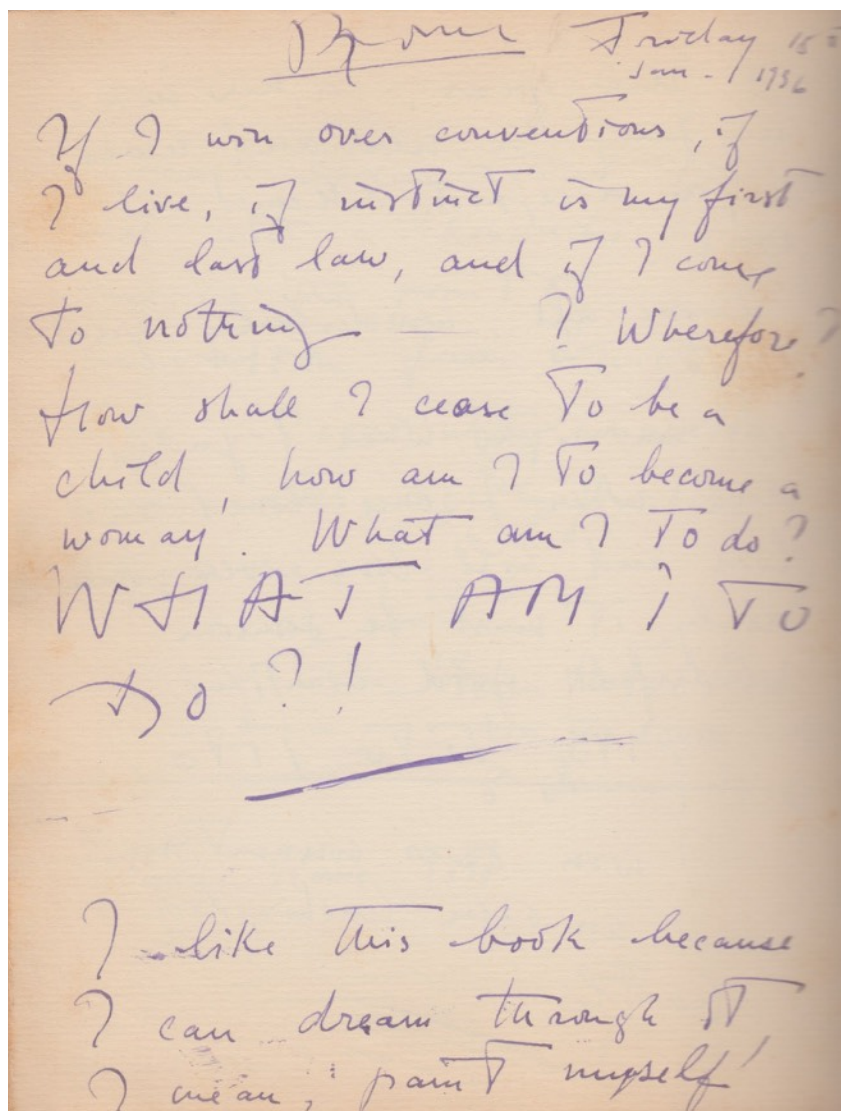 Rome Friday 15
Jan. 1936
If I win over conventions, if
I live, if instinct is my first
and last law, and if I come
to nothing — ? Wherefore?
How shall I cease to be a
child, how am I to become a
woman? What am I to do?
WHAT AM I TO
DO?!
I like this book because
I can dream through it,
I mean, paint myself